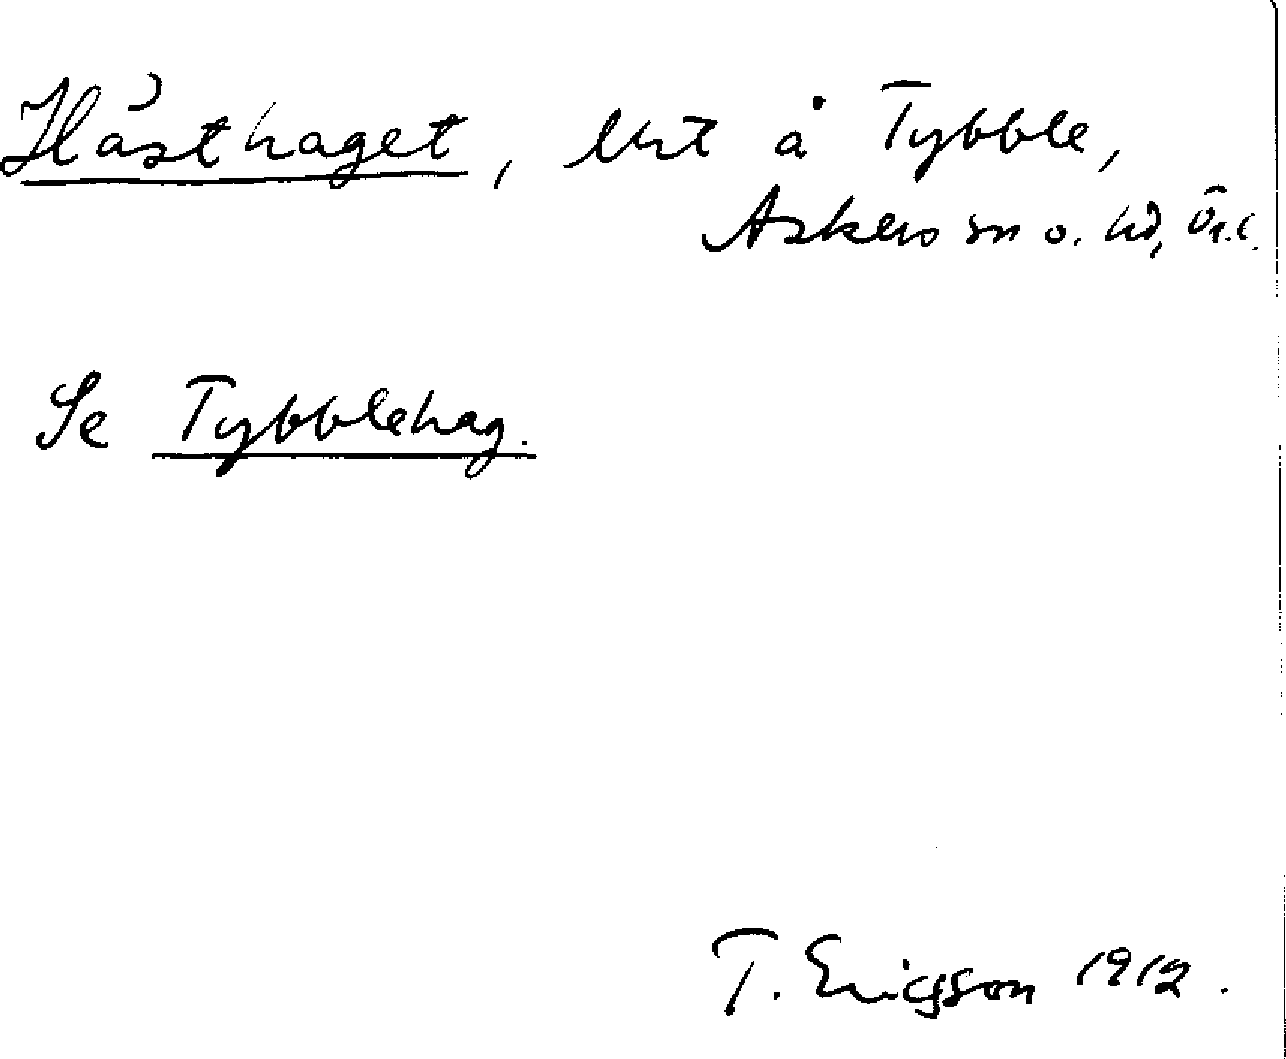 Hästhaget, lht å Tybble,
Askers sn o. hd, Ör. l.
Se Tybblehag.
T. Ericsson 1912.